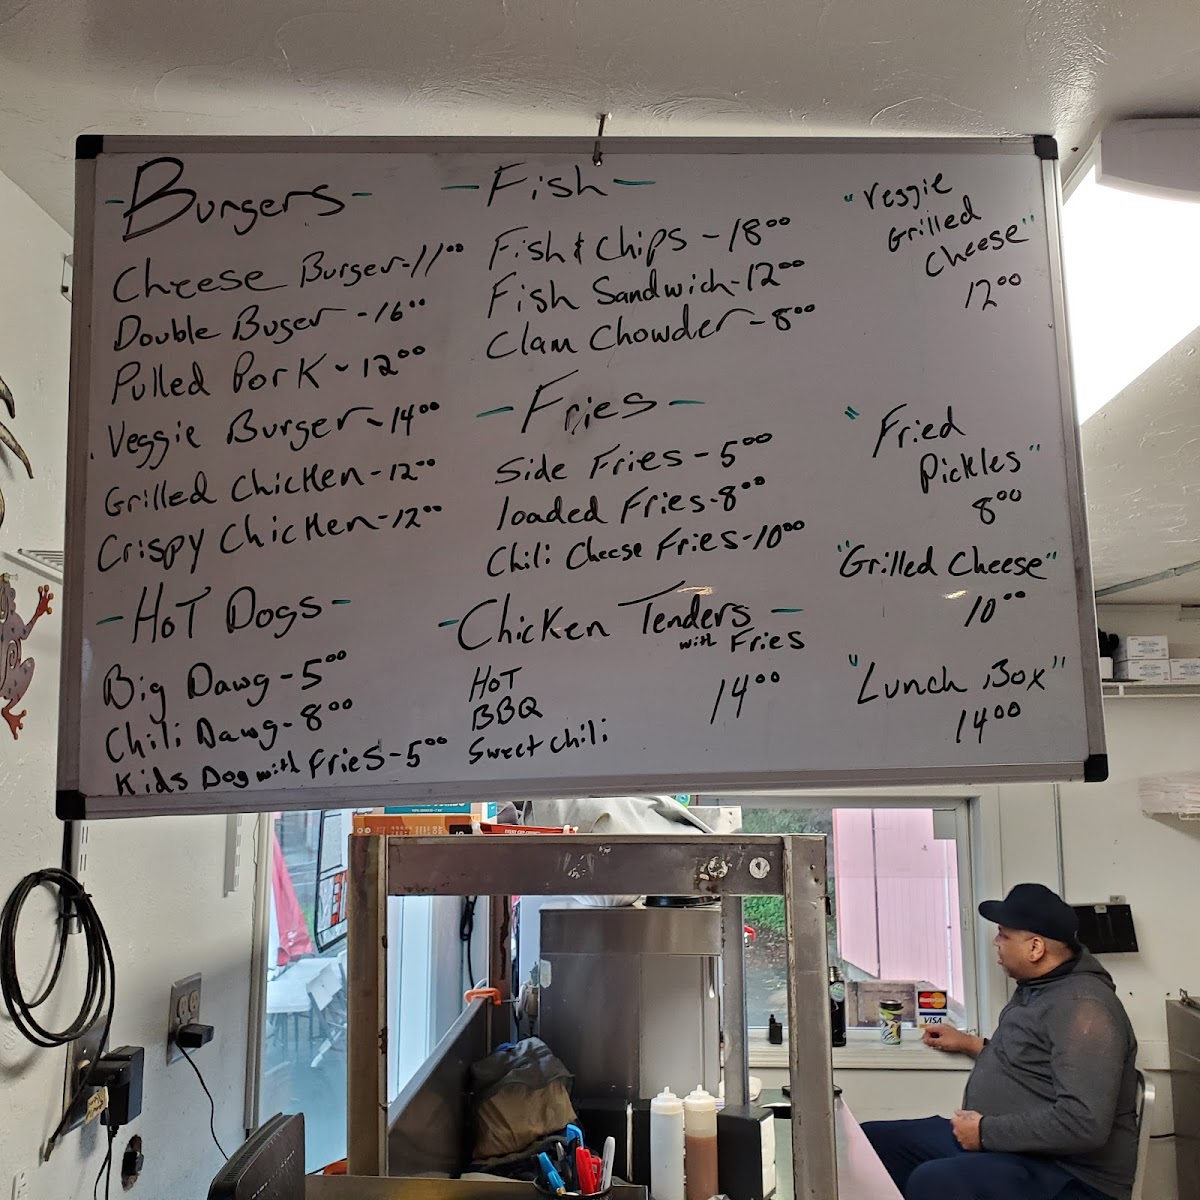 -Burgers-
Cheese Burger-11⁰⁰
Double Buger -16⁰⁰
Pulled Pork - 12⁰⁰
Veggie Burger - 14⁰⁰
Grilled Chicken - 12⁰⁰
Crispy Chicken - 12⁰⁰
- Hot Dogs -
Big Dawg - 5⁰⁰
Chili Dawg - 8⁰⁰
Kids Dog with Fries - 5⁰⁰
- Fish -
Fish & Chips - 18⁰⁰
Fish Sandwich - 12⁰⁰
Clam Chowder - 8⁰⁰
- Fries -
Side Fries - 5⁰⁰
loaded Fries - 8⁰⁰
Chili Cheese Fries - 10⁰⁰
- Chicken Tenders -
with Fries
HOT
BBQ
Sweet chili
14⁰⁰
"Veggie
Grilled
Cheese"
12⁰⁰
"Fried
Pickles"
8⁰⁰
"Grilled Cheese"
10⁰⁰
"Lunch Box"
14⁰⁰
MasterCard
VISA